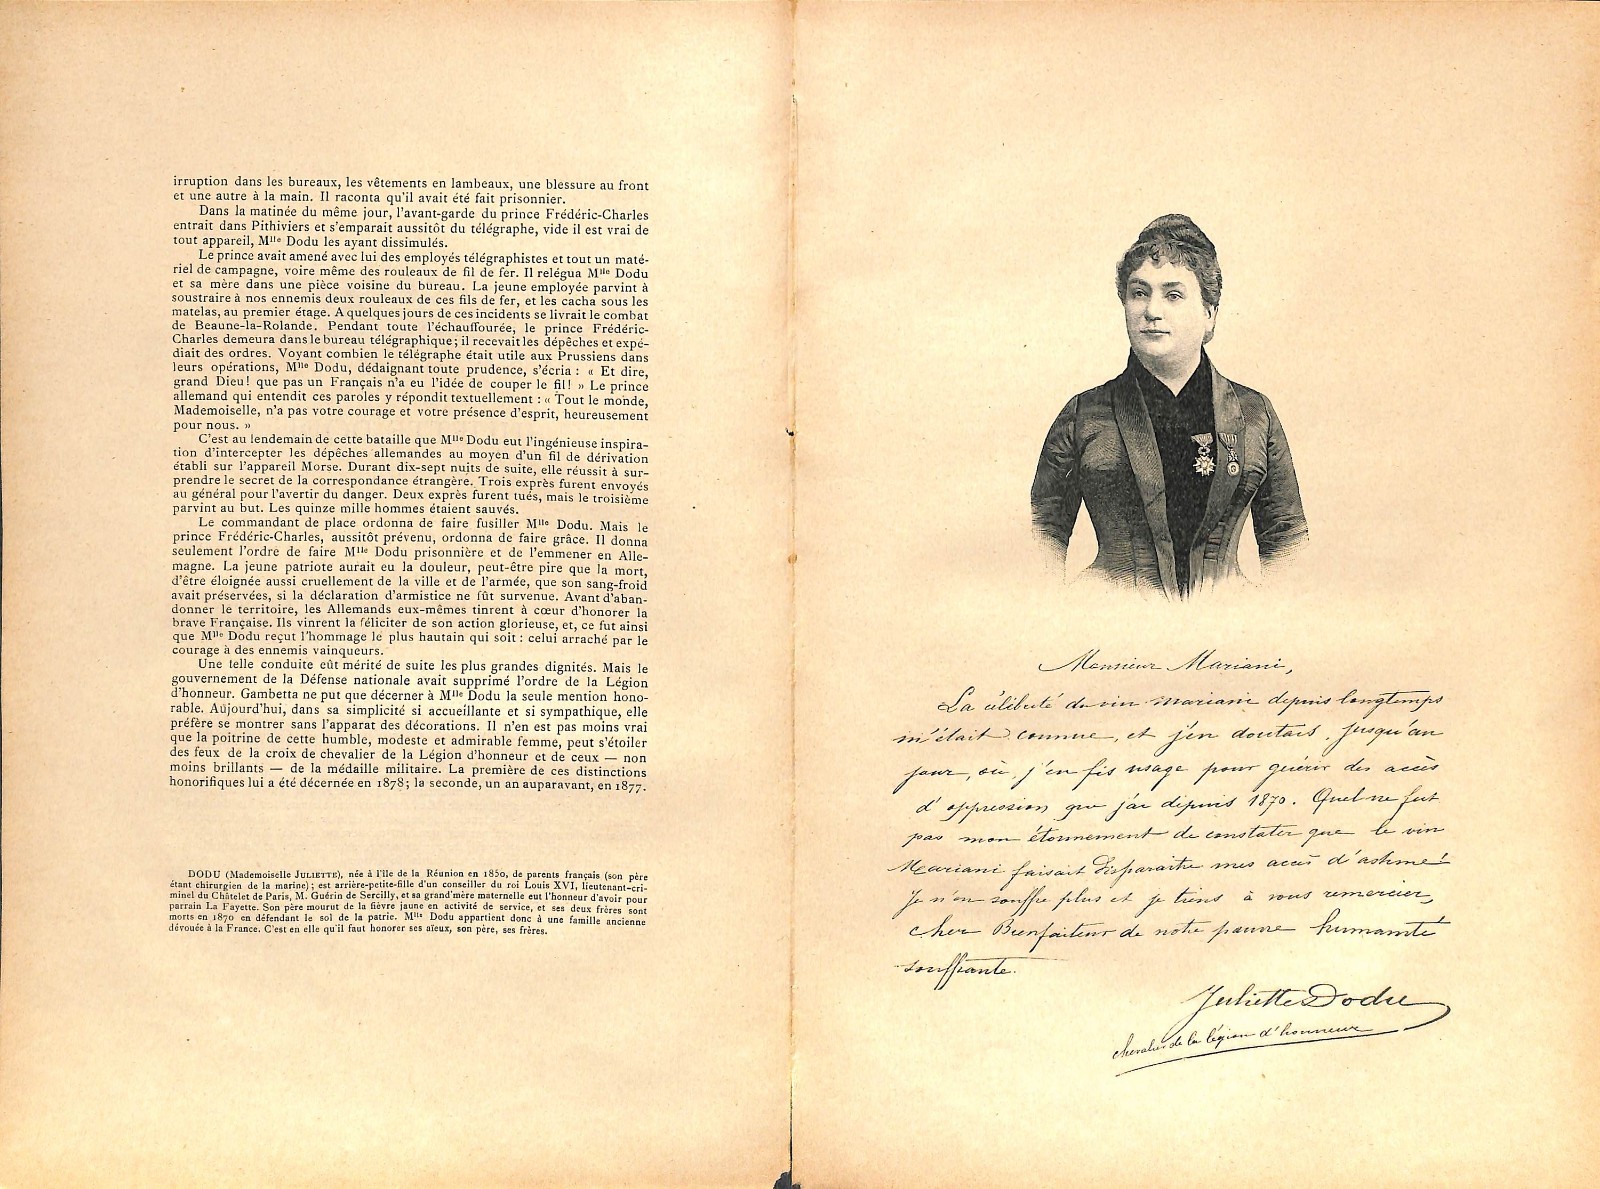 irruption dans les bureaux, les vêtements en lambeaux, une blessure au front
et une autre à la main. Il raconta qu'il avait été fait prisonnier.
Dans la matinée du même jour, l'avant-garde du prince Frédéric-Charles
entrait dans Pithiviers et s'emparait aussitôt du télégraphe, vide il est vrai de
tout appareil, Mlle Dodu les ayant dissimulés.
Le prince avait amené avec lui des employés télégraphistes et tout un maté-
riel de campagne, voire même des rouleaux de fil de fer. Il relégua Mlle Dodu
et sa mère dans une pièce voisine du bureau. La jeune employée parvint à
soustraire à nos ennemis deux rouleaux de ces fils de fer, et les cacha sous les
matelas, au premier étage. A quelques jours de ces incidents se livrait le combat
de Beaune-la-Rolande. Pendant toute l'échauffourée, le prince Frédéric-
Charles demeura dans le bureau télégraphique; il recevait les dépêches et expé-
diait des ordres. Voyant combien le télégraphe était utile aux Prussiens dans
leurs opérations, Mlle Dodu, dédaignant toute prudence, s'écria : « Et dire,
grand Dieu! que pas un Français n'a eu l'idée de couper le fil! » Le prince
allemand qui entendit ces paroles y répondit textuellement : « Tout le monde,
Mademoiselle, n'a pas votre courage et votre présence d'esprit, heureusement
pour nous. »
C'est au lendemain de cette bataille que Mlle Dodu eut l'ingénieuse inspira-
tion d'intercepter les dépêches allemandes au moyen d'un fil de dérivation
établi sur l'appareil Morse. Durant dix-sept nuits de suite, elle réussit à sur-
prendre le secret de la correspondance étrangère. Trois exprès furent envoyés
au général pour l'avertir du danger. Deux exprès furent tués, mais le troisième
parvint au but. Les quinze mille hommes étaient sauvés.
Le commandant de place ordonna de faire fusiller Mlle Dodu. Mais le
prince Frédéric-Charles, aussitôt prévenu, ordonna de faire grâce. Il donna
seulement l'ordre de faire Mlle Dodu prisonnière et de l'emmener en Alle-
magne. La jeune patriote aurait eu la douleur, peut-être pire que la mort,
d'être éloignée aussi cruellement de la ville et de l'armée, que son sang-froid
avait préservées, si la déclaration d'armistice ne fût survenue. Avant d'aban-
donner le territoire, les Allemands eux-mêmes tinrent à cœur d'honorer la
brave Française. Ils vinrent la féliciter de son action glorieuse, et, ce fut ainsi
que Mlle Dodu reçut l'hommage le plus hautain qui soit : celui arraché par le
courage à des ennemis vainqueurs.
Une telle conduite eût mérité de suite les plus grandes dignités. Mais le
gouvernement de la Défense nationale avait supprimé l'ordre de la Légion
d'honneur. Gambetta ne put que décerner à Mlle Dodu la seule mention hono-
rable. Aujourd'hui, dans sa simplicité si accueillante et si sympathique, elle
préfère se montrer sans l'apparat des décorations. Il n'en est pas moins vrai
que la poitrine de cette humble, modeste et admirable femme, peut s'étoiler
des feux de la croix de chevalier de la Légion d'honneur et de ceux — non
moins brillants — de la médaille militaire. La première de ces distinctions
honorifiques lui a été décernée en 1878; la seconde, un an auparavant, en 1877.
DODU (Mademoiselle JULIETTE), née à l'île de la Réunion en 1850, de parents français (son père
étant chirurgien de la marine); est arrière-petite-fille d'un conseiller du roi Louis XVI, lieutenant-cri-
minel du Châtelet de Paris, M. Guérin de Sercilly, et sa grand'mère maternelle eut l'honneur d'avoir pour
parrain La Fayette. Son père mourut de la fièvre jaune en activité de service, et ses deux frères sont
morts en 1870 en défendant le sol de la patrie. Mlle Dodu appartient donc à une famille ancienne
dévouée à la France. C'est en elle qu'il faut honorer ses aïeux, son père, ses frères.
Monsieur Mariani,
La célébrité du vin Mariani depuis longtemps
m'était connue, et j'en doutais, jusqu'au
jour, où, j'en fis usage pour guérir des accès
d'oppression que j'ai depuis 1870. Quel ne fut
pas mon étonnement de constater que le vin
Mariani faisait disparaître mes accès d'asthme!
Je n'en souffre plus et je tiens à vous remercier,
cher Bienfaiteur de notre pauvre humanité
souffrante.
Juliette Dodu
chevalier de la légion d'honneur